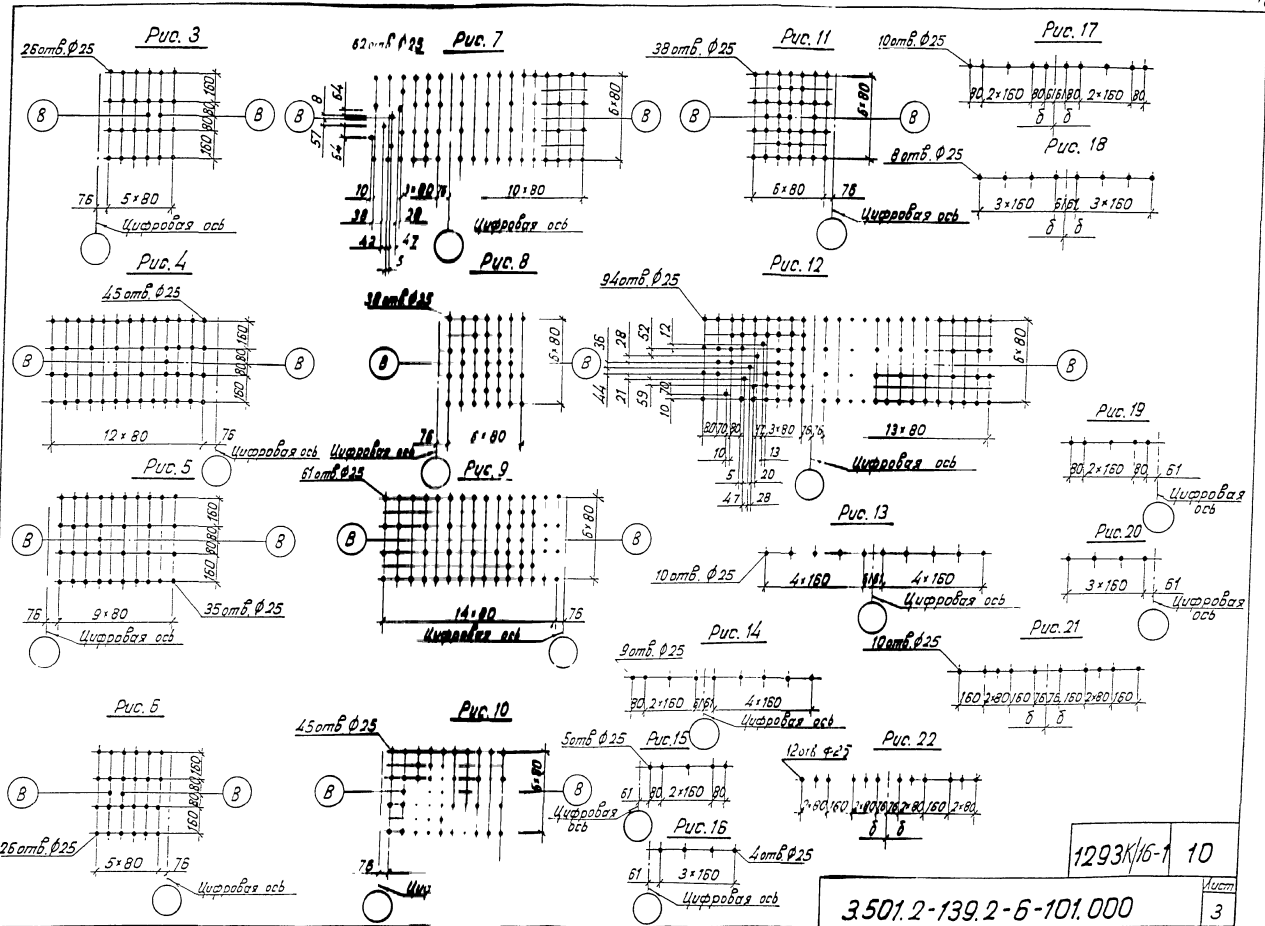 Рис. 3
26отв. Ф25
В
В
160
80
80
160
76
5×80
Цифровая ось
Рис. 4
45отв. Ф25
В
В
160
80
80
160
12×80
76
Цифровая ось
Рис. 5
В
В
160
80
80
160
35отв. Ф25
76
9×80
Цифровая ось
Рис. 6
В
В
160
80
80
160
26отв. Ф25
5×80
76
Цифровая ось
Рис. 7
62отв. Ф25
В
8
64
57
64
6×80
10
3×80
76
10×80
38
28
42
47
Цифровая ось
Рис. 8
38отв. Ф25
В
В
6×80
76
6×80
Цифровая ось
Рис. 9
61отв. Ф25
В
В
6×80
14×80
76
Цифровая ось
Рис. 10
45отв. Ф25
В
В
6×80
76
Рис. 11
38отв. Ф25
В
В
6×80
6×80
76
Цифровая ось
Рис. 12
94отв. Ф25
В
36
28
52
12
44
21
59
70
10
6×80
80
70
80
3×80
76
76
13×80
10
13
5
20
47
28
Цифровая ось
Рис. 13
10отв. Ф25
4×160
61
61
4×160
Цифровая ось
Рис. 14
9отв. Ф25
80
2×160
61
61
4×160
Цифровая ось
Рис. 15
5отв. Ф25
61
80
2×160
80
Цифровая
ось
Рис. 16
4отв. Ф25
61
3×160
Цифровая ось
Рис. 17
10отв. Ф25
80
2×160
80
61
61
80
2×160
80
б
б
Рис. 18
8отв. Ф25
3×160
61
61
3×160
б
б
Рис. 19
80
2×160
80
61
Цифровая
ось
Рис. 20
3×160
61
Цифровая
ось
Рис. 21
10отв. Ф25
160
2×80
160
76
76
160
2×80
160
б
б
Рис. 22
12отв Ф25
2×80
160
2×80
76
76
2×80
160
2×80
б
б
1293К/16-1
10
3.501.2-139.2-6-101.000
Лист
3